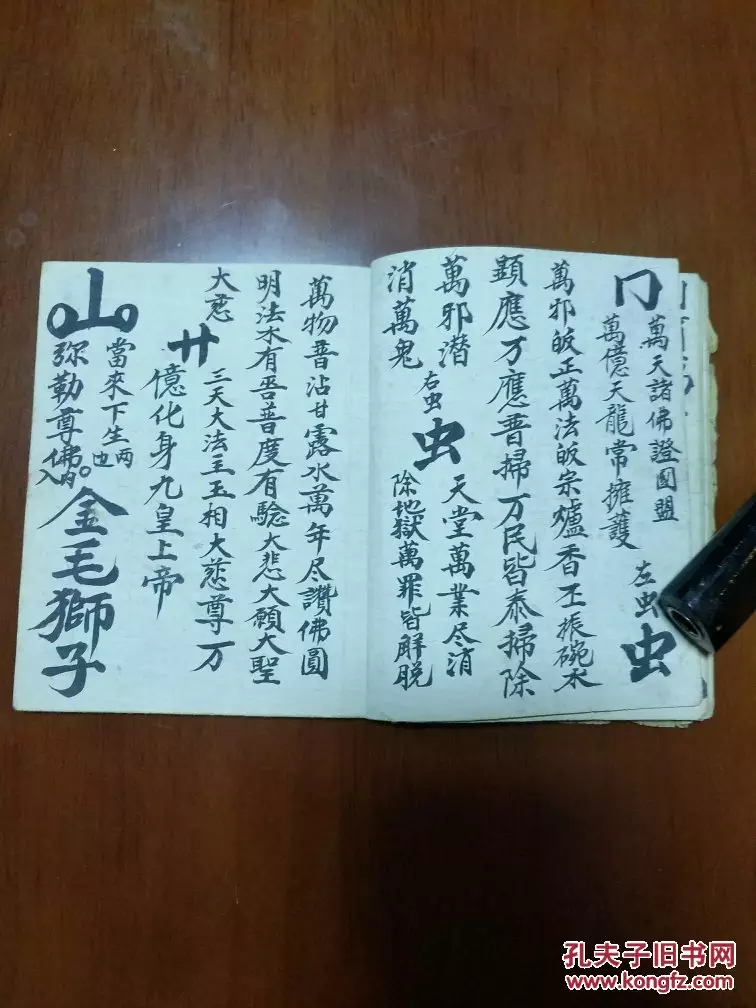 冂
萬天諸佛證団盟
萬億天龍常擁護
左虫
虫
萬邪皈正萬法皈宗爐香丕振碗水
顕應万應普掃万民皆泰掃除
萬邪潜
消萬鬼
右虫
虫
天堂萬業尽消
除地獄萬罪皆解脱
萬物普沾甘露水萬年尽讚佛圓
明法水有吾普度有驗大悲大願大聖
大慈
廿
三天大法主玉相大慈尊万
億化身九皇上帝
山
當來下生
两
也
弥勒尊佛
入内
金毛獅子
孔夫子旧书网
www.kongfz.com